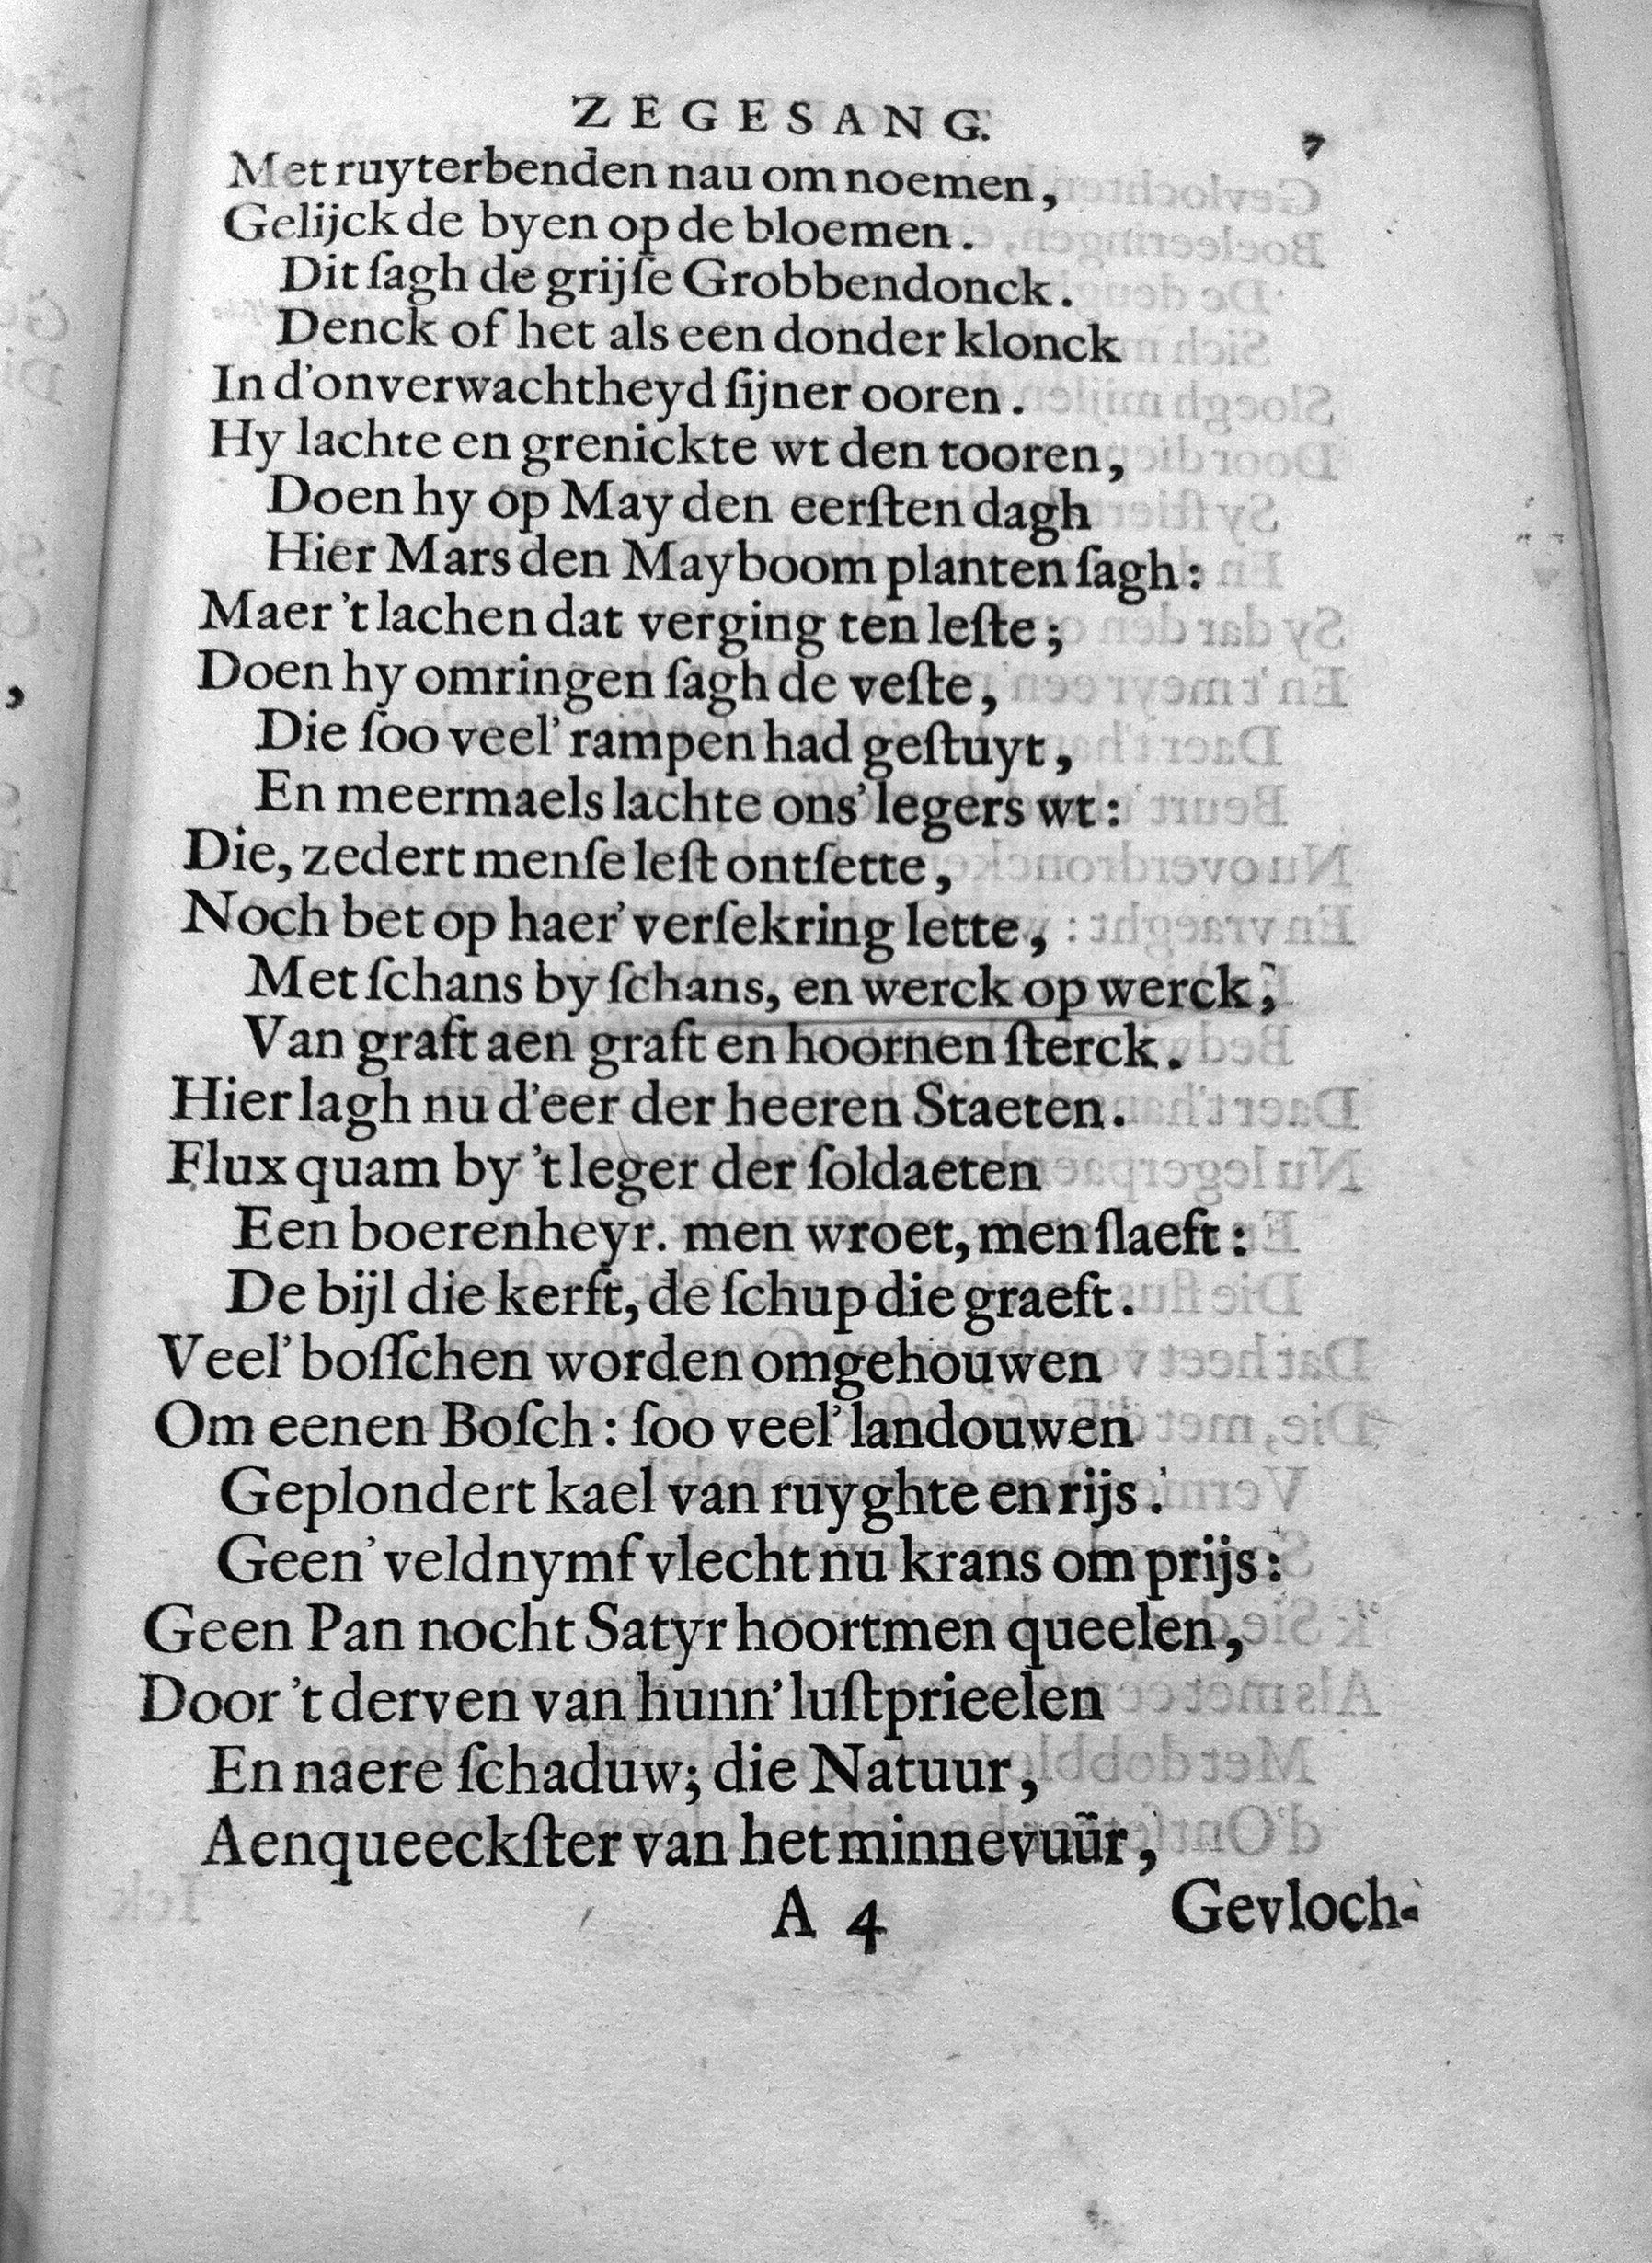 ZEGESANG. 7
Met ruyterbenden nau om noemen,
Gelijck de byen op de bloemen.
Dit ſagh de grijſe Grobbendonck.
Denck of het als een donder klonck
In d'onverwachtheyd ſijner ooren.
Hy lachte en grenickte wt den tooren,
Doen hy op May den eerſten dagh
Hier Mars den Mayboom planten ſagh:
Maer 't lachen dat verging ten leſte;
Doen hy omringen ſagh de veſte,
Die ſoo veel' rampen had geſtuyt,
En meermaels lachte ons' legers wt:
Die, zedert menſe leſt ontſette,
Noch bet op haer' verſekring lette,
Met ſchans by ſchans, en werck op werck,
Van graft aen graft en hoornen ſterck.
Hier lagh nu d'eer der heeren Staeten.
Flux quam by 't leger der ſoldaeten
Een boerenheyr. men wroet, men ſlaeft:
De bijl die kerft, de ſchup die graeft.
Veel' boſſchen worden omgehouwen
Om eenen Boſch: ſoo veel' landouwen
Geplondert kael van ruyghte en rijs.
Geen' veldnymf vlecht nu krans om prijs:
Geen Pan nocht Satyr hoortmen queelen,
Door 't derven van hunn' luſtprieelen
En naere ſchaduw; die Natuur,
Aenqueeckſter van het minnevuür,
A 4 Gevloch-